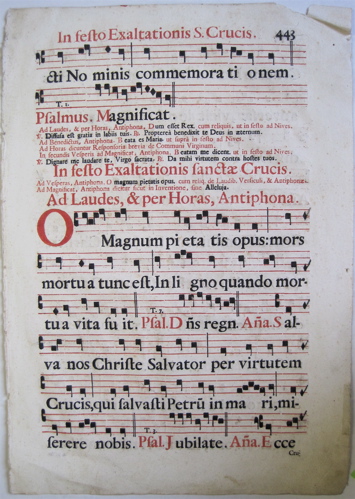 In festo Exaltationis S. Crucis. 443
cti No minis commemora ti o nem.
T. 1.
Psalmus. Magnificat.
Ad Laudes, & per Horas, Antiphona. Dum esset Rex. cum reliquis, ut in festo ad Nives.
℣. Diffusa est gratia in labiis tuis. ℞. Propterea benedixit te Deus in æternum.
Ad Benedictus, Antiphona. Beata es Maria. ut supra in festo ad Nives.
Ad Horas dicuntur Responsoria brevia de Communi Virginum.
In secundis Vesperis ad Magnificat, Antiphona. Beatam me dicent. ut in festo ad Nives.
℣. Dignare me laudare te, Virgo sacrata. ℞. Da mihi virtutem contra hostes tuos.
In festo Exaltationis sanctæ Crucis.
Ad Vesperas, Antiphona. O magnum pietatis opus. cum reliq. de Laudib. Versiculus, & Antiphona
Ad Magnificat, Antiphona dicitur sicut in Inventione, sine Alleluja.
Ad Laudes, & per Horas, Antiphona.
O Magnum pi eta tis opus: mors
mortu a tunc est, In li gno quando mor-
T. 1.
tu a vita fu it. Psal. Dñs regn. Aña. Sal-
va nos Christe Salvator per virtutem
Crucis, qui salvasti Petrū in ma ri, mi-
T. 1.
serere nobis. Psal. Jubilate. Aña. Ecce
Cru